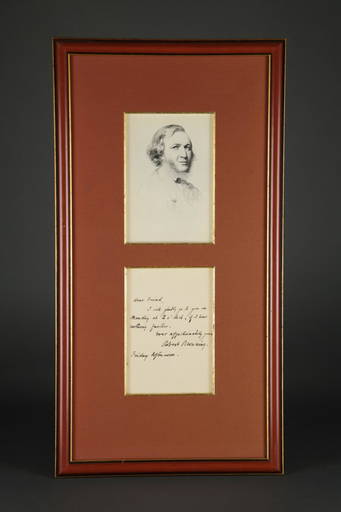 Dear Friend,
I will gladly go to you on
Monday at 2 o'clock, if I hear
nothing further.
ever affectionately yours
Robert Browning.
Friday Afternoon.